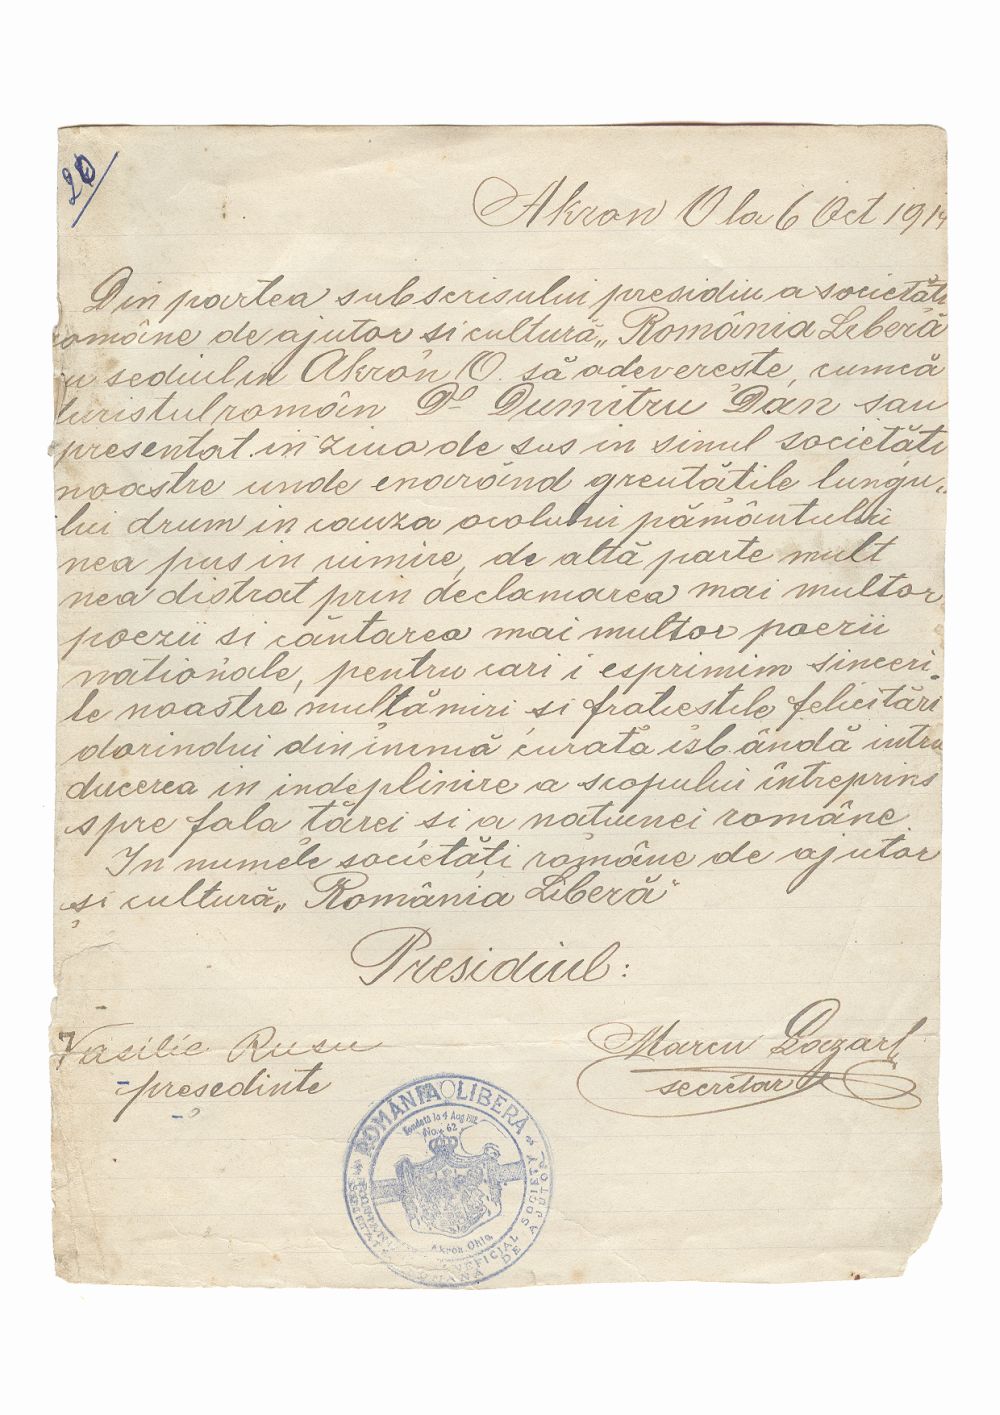 20
Akron O la 6 Oct 191
Din partea subscrisului presidiu a societăti
omâne de ajutor si cultură„ România Liberă
u sediul in Akron O. să adevereste, cumcă
turistul român Dl Dumitru Dan sau
presentat in ziua de sus in sinul societăti
noastre unde enarând greutătile lungu„
lui drum in cauza ocolului pământului
nea pus in uimire, de altă parte mult
nea distrat prin declamarea mai multor
poezii si cântarea mai multor poezii
nationale, pentru cari i esprimim sinceri„
le noastre multămiri si fratiestile felicitări
dorindui din inimă curată isbândă intru
ducerea in indeplinire a scopului întreprins
spre fala tărei si a natiunei române.
In numele societăți române de ajutor
și cultură„ România Liberă"
Presidiul:
Vasilie Rusu
presedinte
Marcu
secretar
ROMÂNIA LIBERĂ
Fondată la 4 Aug. 1912
No. 62
Akron, Ohio
BENEFICIAL SOCIETY
SOCIETATEA ROMÂNĂ DE AJUTOR